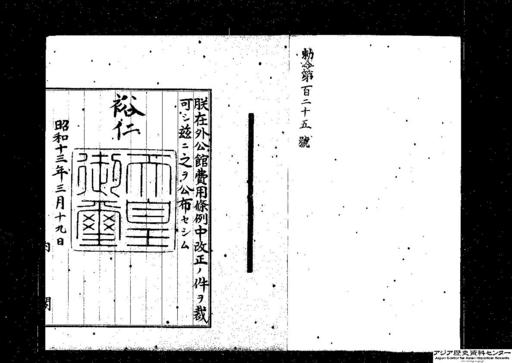 勅令第百二十五號
朕在外公館費用條例中改正ノ件ヲ裁
可シ茲ニ之ヲ公布セシム
裕仁
天皇
御璽
昭和十三年三月十九日
内閣
アジア歴史資料センター
Japan Center for Asian Historical Records